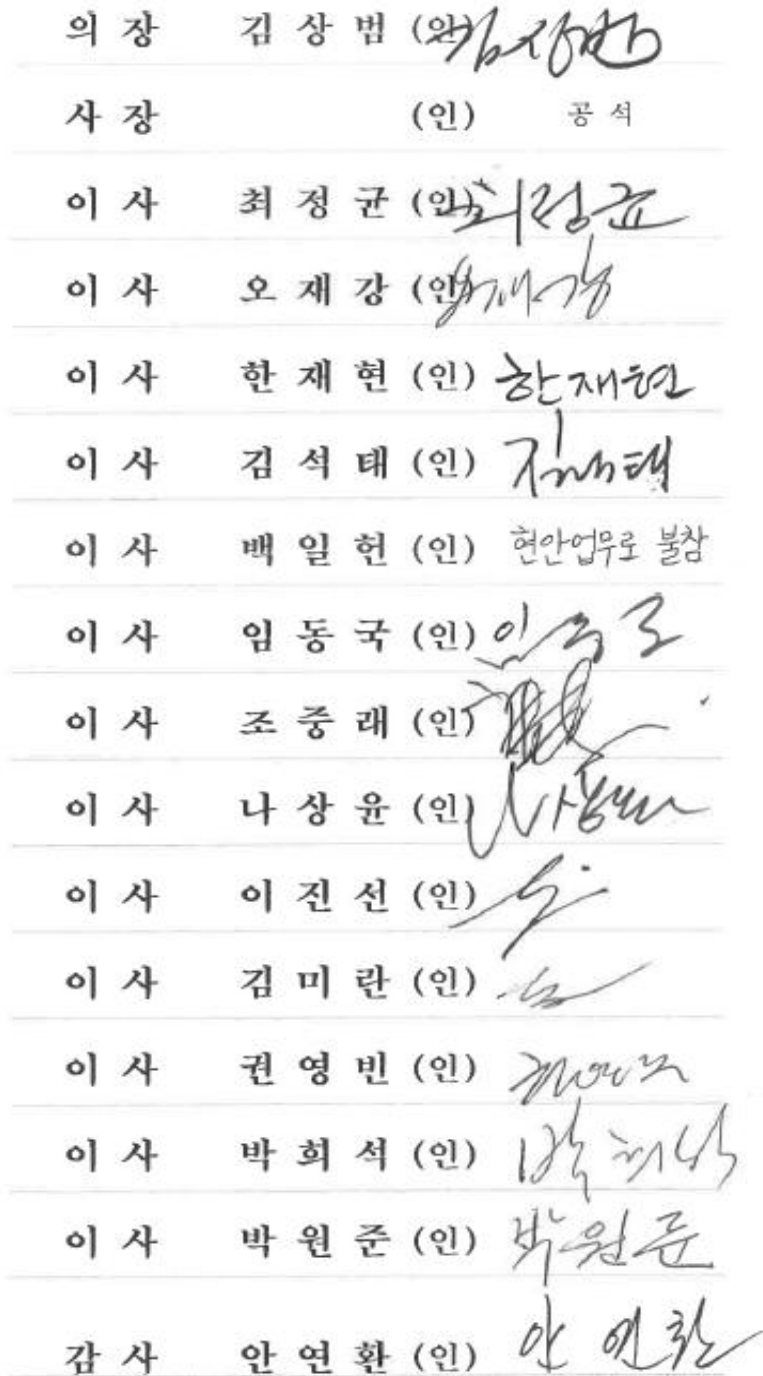 의 장 김 상 범 (인) 김상범
사 장 (인) 공 석
이 사 최 정 균 (인) 최정균
이 사 오 재 강 (인) 오재강
이 사 한 재 현 (인) 한재현
이 사 김 석 태 (인) 김석태
이 사 백 일 헌 (인) 현안업무로 불참
이 사 임 동 국 (인)
이 사 조 중 래 (인)
이 사 나 상 윤 (인)
이 사 이 진 선 (인)
이 사 김 미 란 (인)
이 사 권 영 빈 (인)
이 사 박 희 석 (인) 박희석
이 사 박 원 준 (인) 박원준
감 사 안 연 환 (인) 안연환